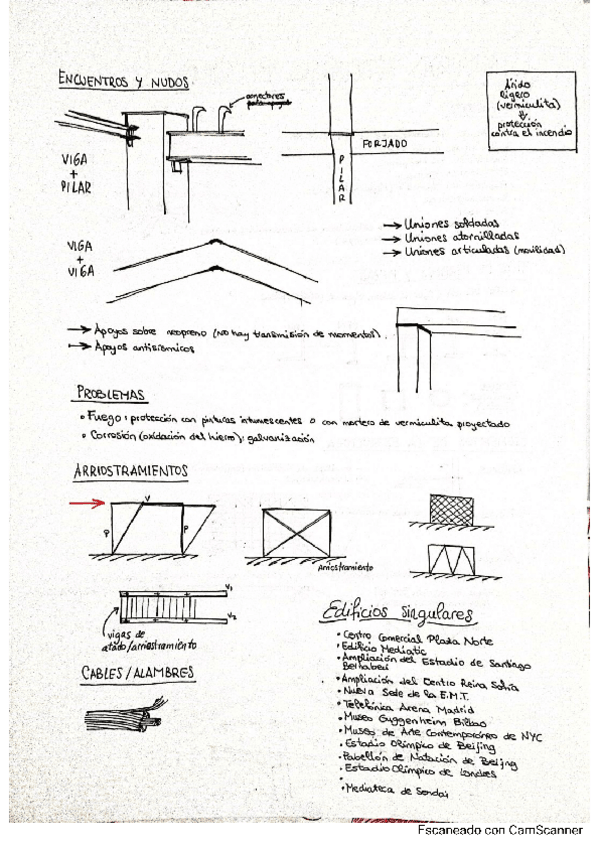 ENCUENTROS Y NUDOS
conectores
Árido
ligero
(vermiculita)
protección
contra el incendio
VIGA
+
PILAR
FORJADO
PILAR
→ Uniones soldadas
→ Uniones atornilladas
→ Uniones articuladas (movilidad)
VIGA
+
VIGA
→ Apoyos sobre neopreno (No hay transmisión de momentos).
→ Apoyos antisísmicos
PROBLEMAS
• Fuego: protección con pinturas intumescentes o con mortero de vermiculita proyectado
• Corrosión (oxidación del hierro): galvanización
ARRIOSTRAMIENTOS
V
P
P
Arriostramiento
V1
V2
vigas de
atado/arriostramiento
CABLES/ALAMBRES
Edificios singulares
• Centro Comercial Plaza Norte
• Edificio Mediatic
• Ampliación del Estadio de Santiago
Bernabeu
• Ampliación del Centro Reina Sofía
• Nueva Sede de la E.M.T.
• Telefónica Arena Madrid
• Museo Guggenheim Bilbao
• Museo de Arte Contemporáneo de NYC
• Estadio Olímpico de Beijing
• Pabellón de Natación de Beijing
• Estadio Olímpico de Londres
•
• Mediateca de Sendai
Escaneado con CamScanner